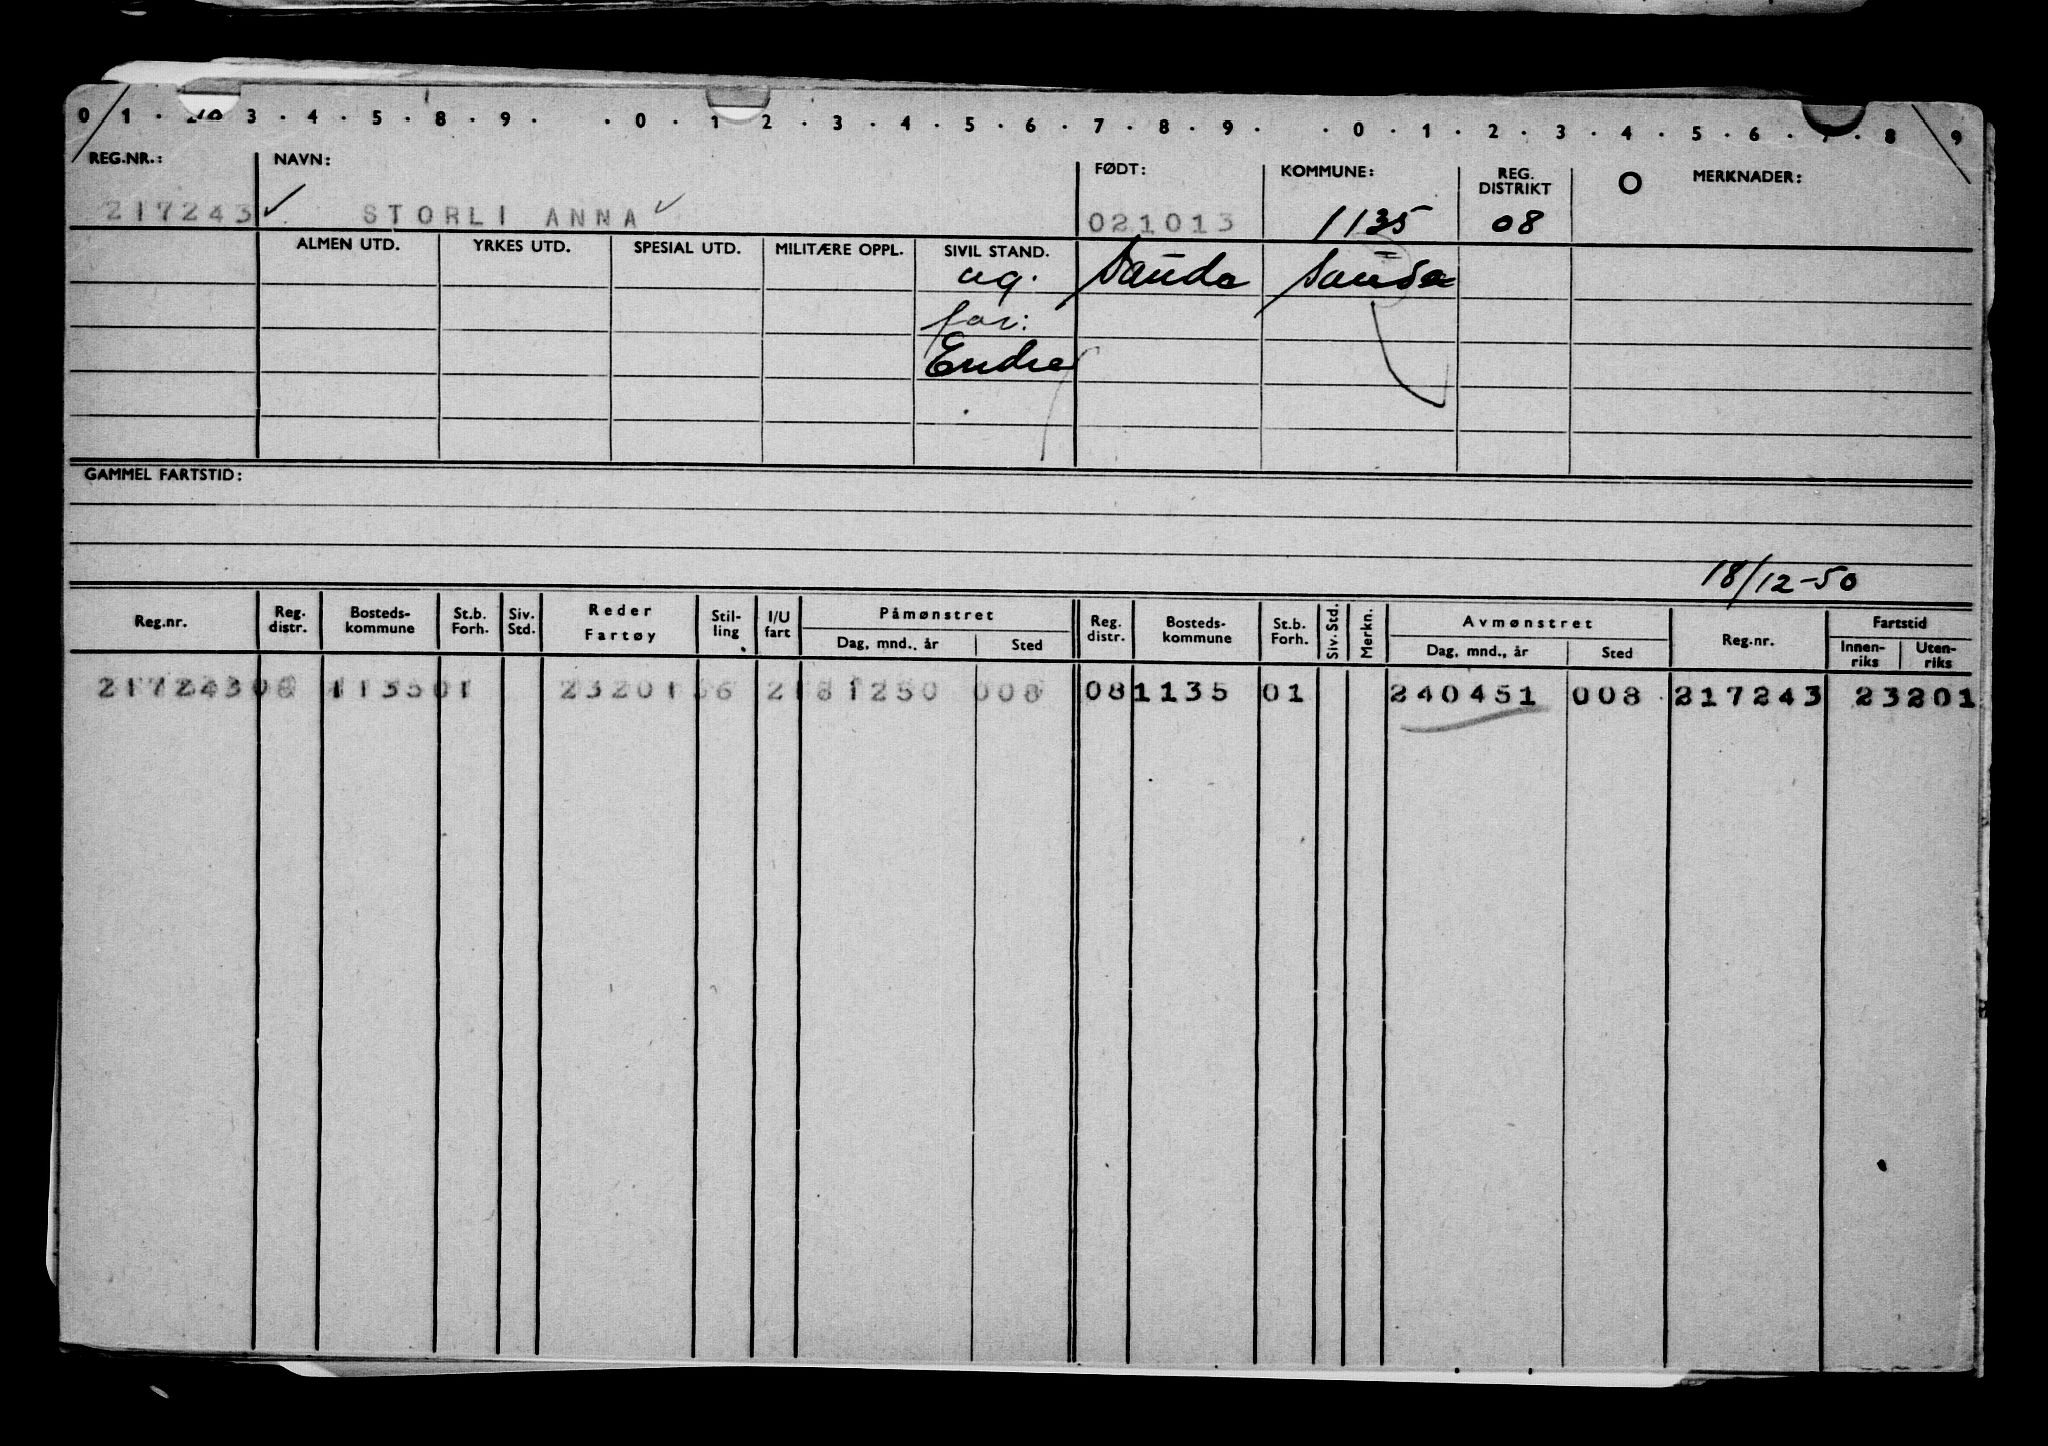 0 1 . 2 3 . 4 . 5 . 8 . 9 . . 0 . 1 2 . 3 . 4 . 5 . 6 . 7 . 8 . 9 . . 0 . 1 . 2 . 3 . 4 . 5 . 6 . 7 . 8 9
REG.NR.: NAVN: FØDT: KOMMUNE: REG. DISTRIKT O MERKNADER:
217243 STORLI ANNA 021013 1135 08
ALMEN UTD. YRKES UTD. SPESIAL UTD. MILITÆRE OPPL. SIVIL STAND.
ug. Sauda Sauda
far:
Endre
GAMMEL FARTSTID:
18/12-50
Reg.nr. Reg. distr. Bosteds-kommune St.b. Forh. Siv. Std. Reder Fartøy Stil-ling I/U fart Påmønstret Dag, mnd., år Sted Reg. distr. Bosteds-kommune St.b. Forh. Siv. Std. Merkn. Avmønstret Dag, mnd., år Sted Reg.nr. Fartstid Innen-riks Uten-riks
217243 08 1135 01 23201 56 2 181250 008 08 1135 01 240451 008 217243 23201